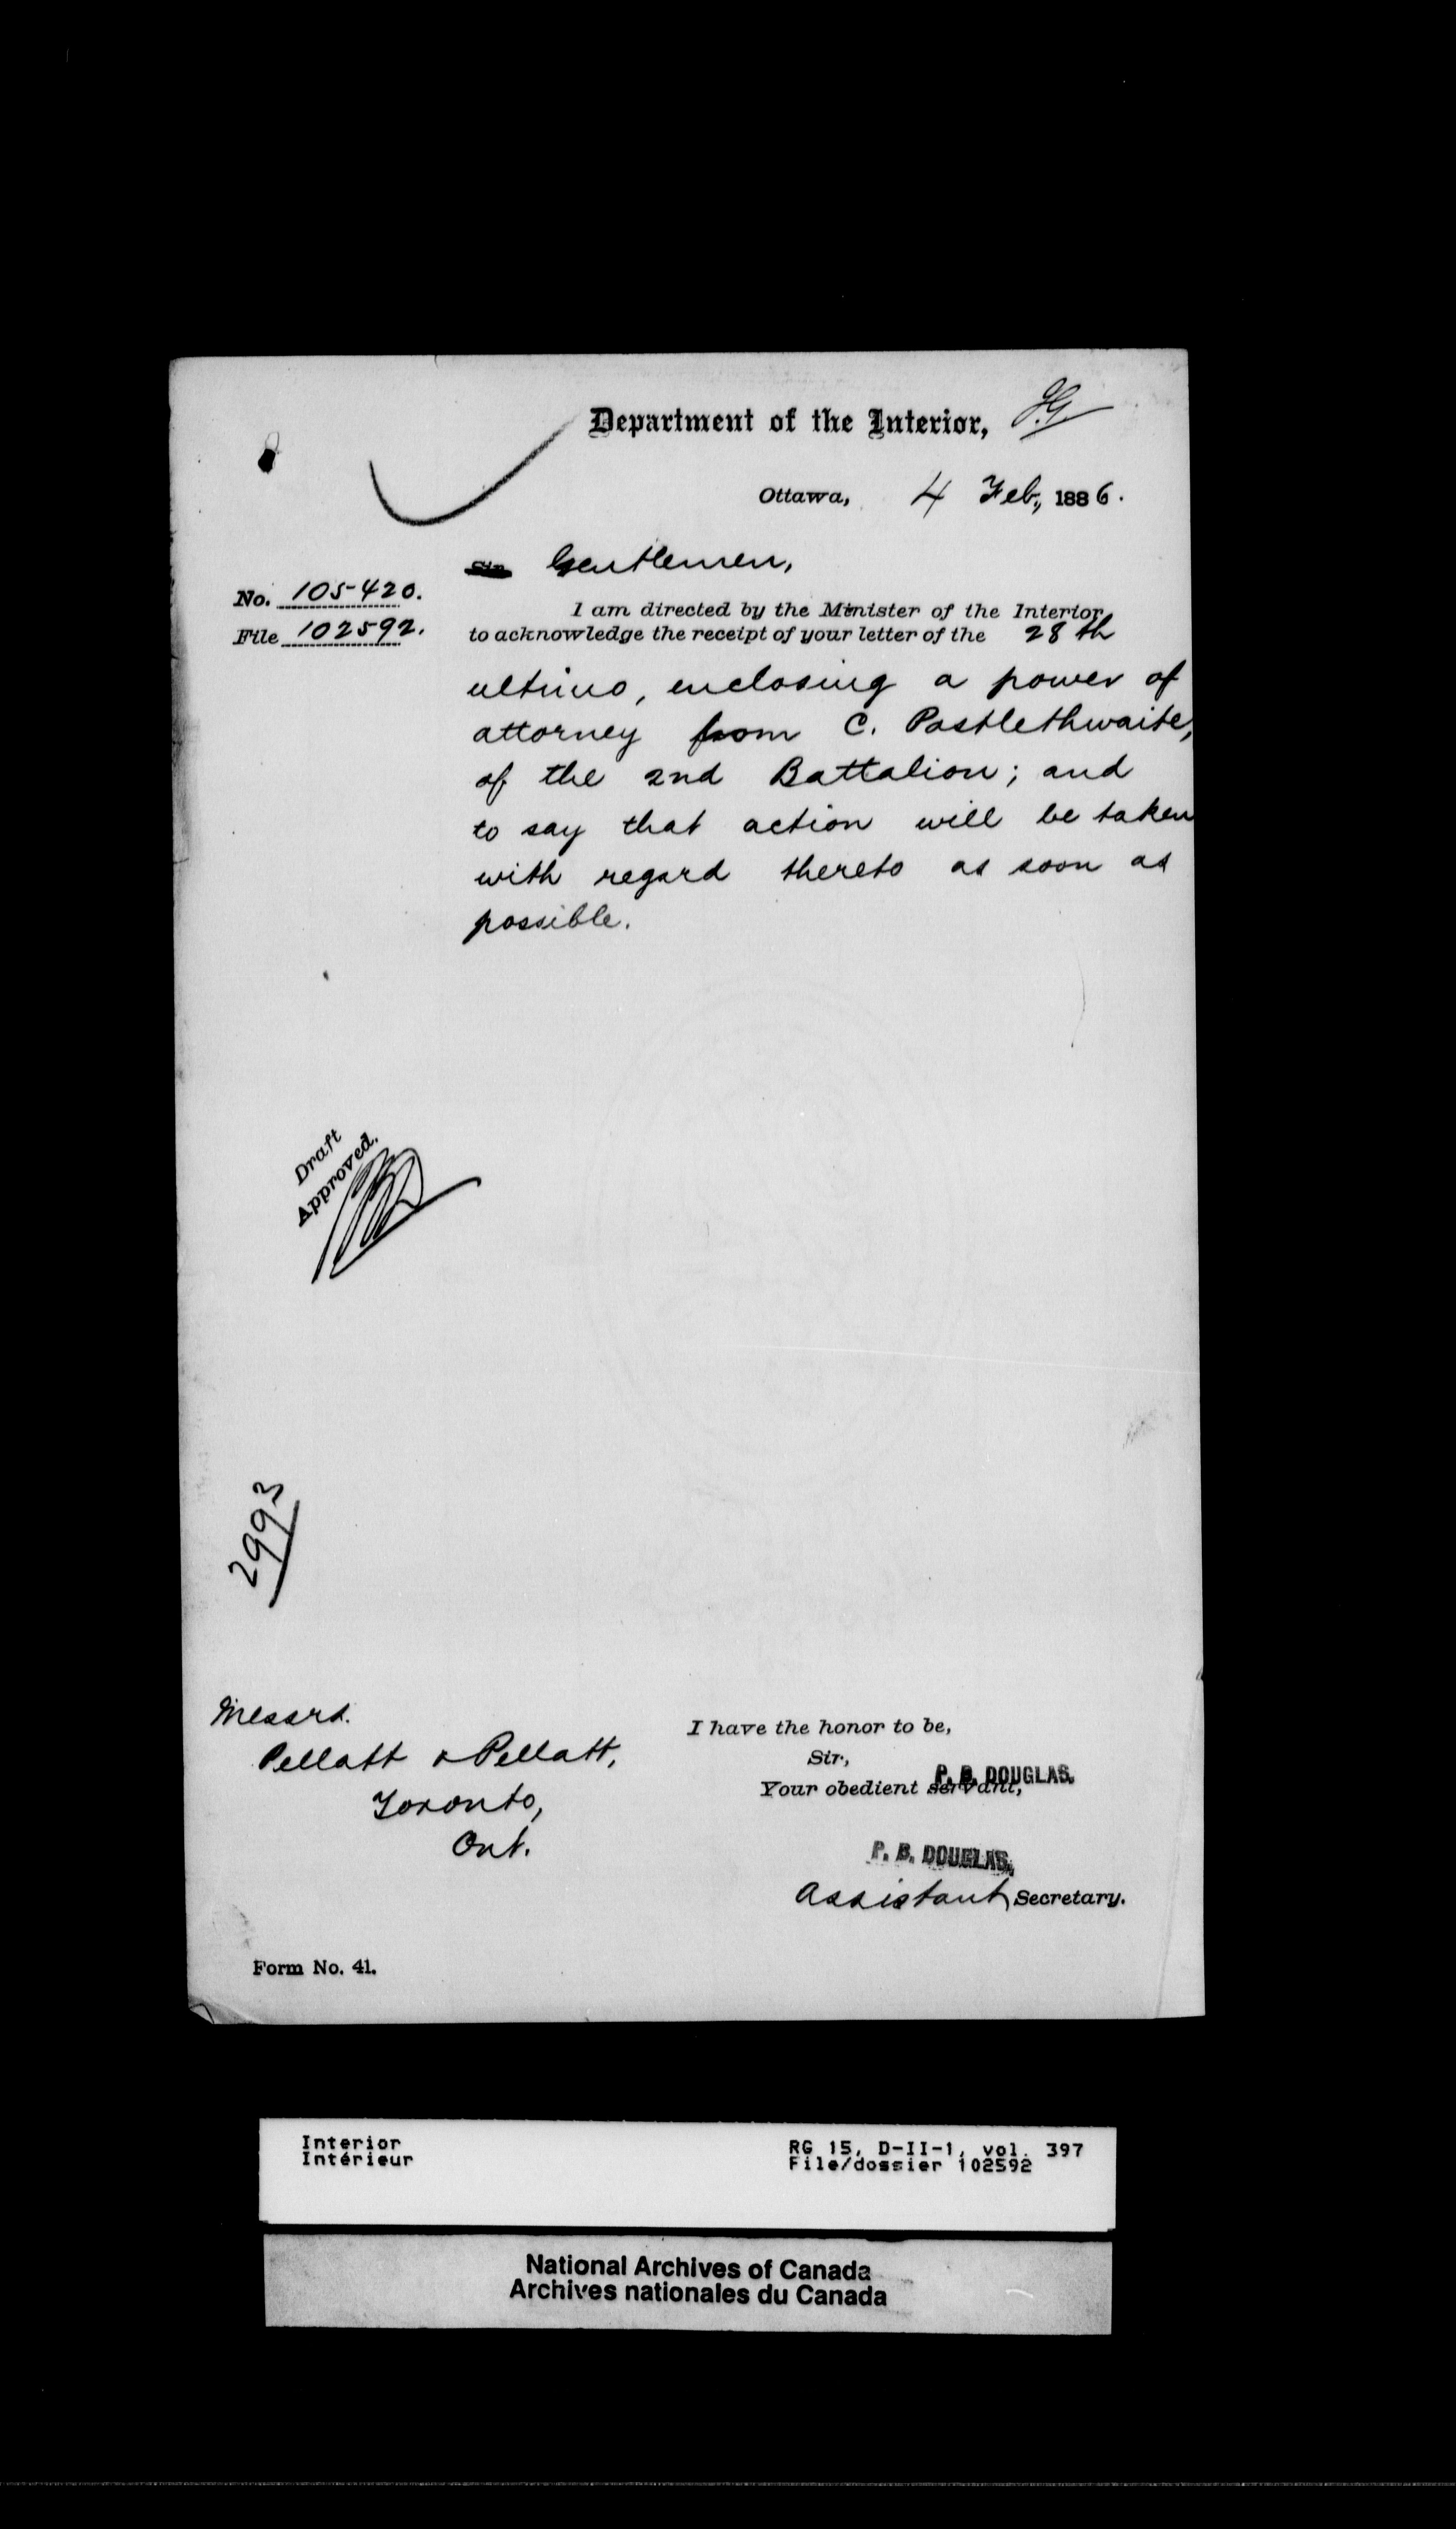 Department of the Interior,
Ottawa, 4 Feb, 1886.
Gentlemen,
No. 105420.
File 102592.
I am directed by the Minister of the Interior,
to acknowledge the receipt of your letter of the 28th
ultimo, enclosing a power of
attorney from C. Postlethwaite,
of the 2nd Battalion; and
to say that action will be taken
with regard thereto as soon as
possible.
Draft
Approved.
2993
Messrs.
Pellatt & Pellatt,
Toronto,
Ont.
I have the honor to be,
Sir,
Your obedient servant,
P. B. DOUGLAS.
P. B. DOUGLAS,
Assistant Secretary.
Form No. 41.
Interior
Intérieur
RG 15, D-II-1, vol. 397
File/dossier 102592
National Archives of Canada
Archives nationales du Canada